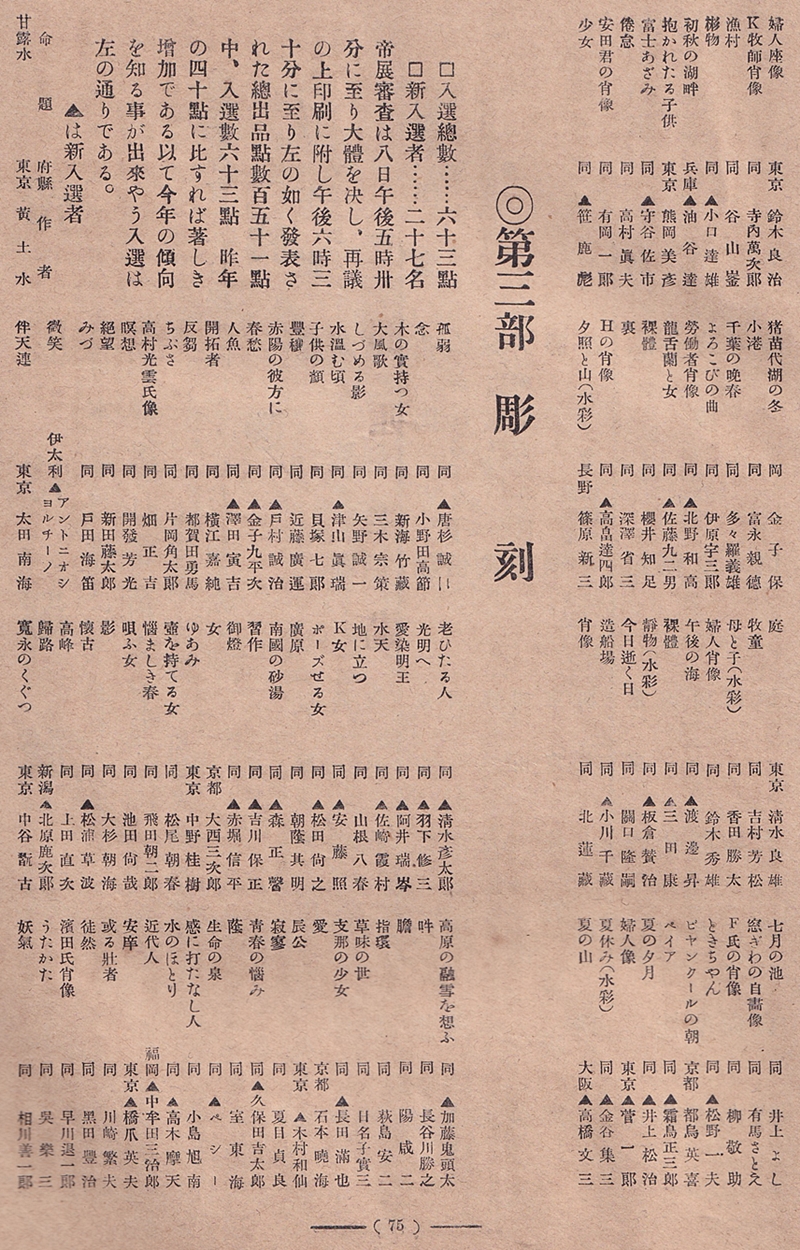 婦人座像 東京 鈴木良治
K牧師肖像 同 寺内萬次郎
漁村 同 谷山崟
彬物 同▲小口達雄
初秋の湖畔 兵庫▲油谷達
抱かれたる子供 東京 熊岡美彦
富士あざみ 同▲守谷佐市
倦怠 同 高村眞夫
安田君の肖像 同 有岡一郎
少女 同▲笹鹿彪
猪苗代湖の冬 岡 金子保
小港 同 富永親德
千葉の晩春 同 多々羅義雄
よろこびの曲 同 伊原宇三郎
勞働者肖像 同▲北野和高
龍舌蘭と女 同▲佐藤九二男
裸體 同 櫻井知足
裏 同 深澤省三
Hの肖像 同▲高畠達四郎
夕照と山(水彩) 長野 篠原新三
庭 東京 清水良雄
牧童 同 吉村芳松
母と子(水彩) 同 香田勝太
婦人肖像 同 鈴木秀雄
午後の海 同▲渡邊昇
裸體 同▲三田康
靜物(水彩) 同▲板倉賛治
今日逝く日 同 關口隆嗣
造船場 同▲小川千藏
肖像 同 北蓮藏
七月の池 同 井上よし
窓ぎわの自畫像 同 有馬さとえ
F氏の肖像 同 柳敬助
ときちやん 同▲松野一夫
ビヤンクールの朝 京都 都鳥英喜
ペイア 同▲霜鳥正三郎
夏の夕月 同▲井上松治
婦人像 東京▲菅一郎
夏休み(水彩) 同▲金谷集三
夏の山 大阪▲高橋文三
◎第三部 彫刻
□入選總數……六十三點
□新入選者……二十七名
帝展審査は八日午後五時卅
分に至り大體を決し、再議
の上印刷に附し午後六時三
十分に至り左の如く發表さ
れた總出品點數百五十一點
中、入選數六十三點 昨年
の四十點に比すれば著しき
増加である以て今年の傾向
を知る事が出來やう入選は
左の通りである。
▲は新入選者
命題 府縣 作者
甘露水 東京 黃土水
孤弱 同▲唐杉誠一
念 同 小野田高節
木の實持つ女 同 新海竹藏
大風歌 同 三木宗策
しづめる影 同 矢野誠一
水溫む頃 同▲津山眞瑞
子供の顏 同 貝塚七郎
豐穰 同 近藤廣運
赤陽の彼方に 同▲戸村誠治
春愁 同▲金子九平次
人魚 同▲澤田寅吉
開拓者 同 橫江嘉純
反芻 同 都賀田勇馬
ちぶさ 同 片岡角太郎
高村光雲氏像 同 畑正吉
瞑想 同 開發芳光
絕望 同 新田藤太郎
みづ 同 戸田海笛
微笑 伊太利▲アントニオシヨルチーノ
伴天連 東京 太田南海
老ひたる人 同▲清水彦太郎
光明へ 同▲羽下修三
愛染明王 同▲阿井瑞岑
水天 同▲佐崎霞村
地に立つ 同 山根八春
K女 同▲安藤照
ポーズせる女 同▲松田尙之
廣原 同 朝蔭其明
南國の砂湯 同▲森正謦
習作 同▲吉川保正
御燈 同▲赤堀信平
女 京都 大西三次郎
ゆあみ 東京 中野桂樹
壺を持てる女 同 松尾朝春
惱ましき春 同 飛田朝二郎
唄ふ女 同 池田尙哉
影 同 大杉朝海
懷古 同▲松浦草波
高峰 同 上田直次
歸路 新潟▲北原鹿次郎
寬永のくぐつ 東京 中谷翫古
高原の融雪を想ふ 同▲加藤鬼頭太
吽 同 長谷川勝之
膽 同 陽咸二
指環 同 荻島安二
草味の世 同 日名子實三
支那の少女 同▲長田滿也
愛 京都 石本曉海
辰公 東京▲木村和仙
寂寥 同 夏目貞良
靑春の惱み 同▲久保田吉太郎
蔭 同 室東海
生命の泉 同▲ペシー
感に打たなし人 同 小島旭南
水のほとり 同▲高木摩天
近代人 福岡▲中牟田三治郎
安摩 東京▲橋爪英夫
或る壯者 同 川崎繁夫
徒然 同 黑田豐治
濱田氏肖像 同 早川退一郎
うたかた 同 吳樂三
妖氣 同 相川善一郎
(75)